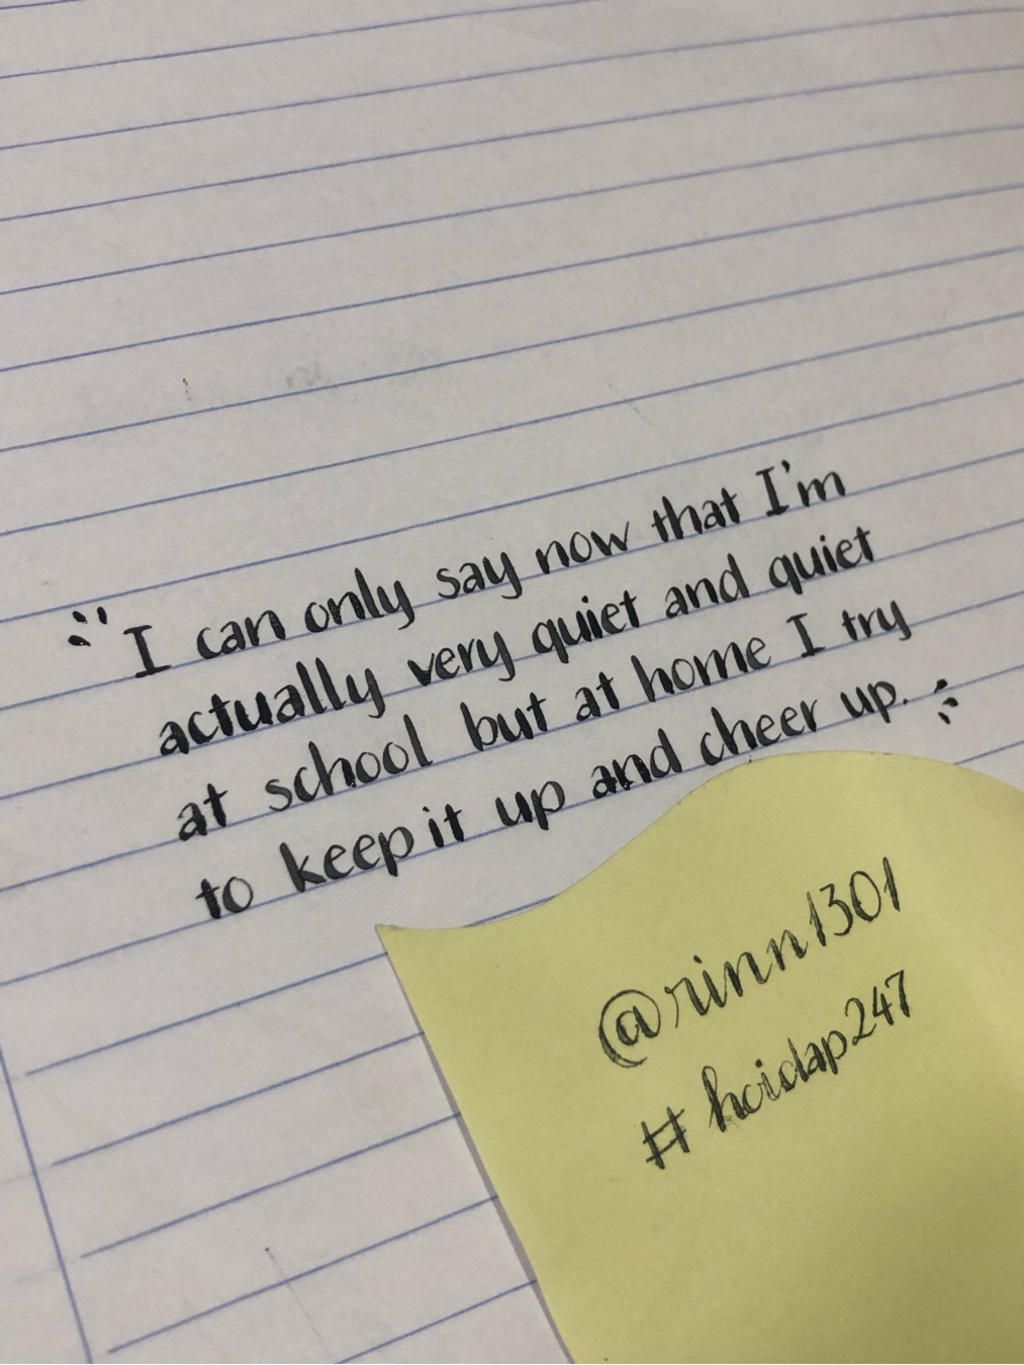 "I can only say now that I'm
actually very quiet and quiet
at school but at home I try
to keep it up and cheer up."
@rinn1301
#hoidap247